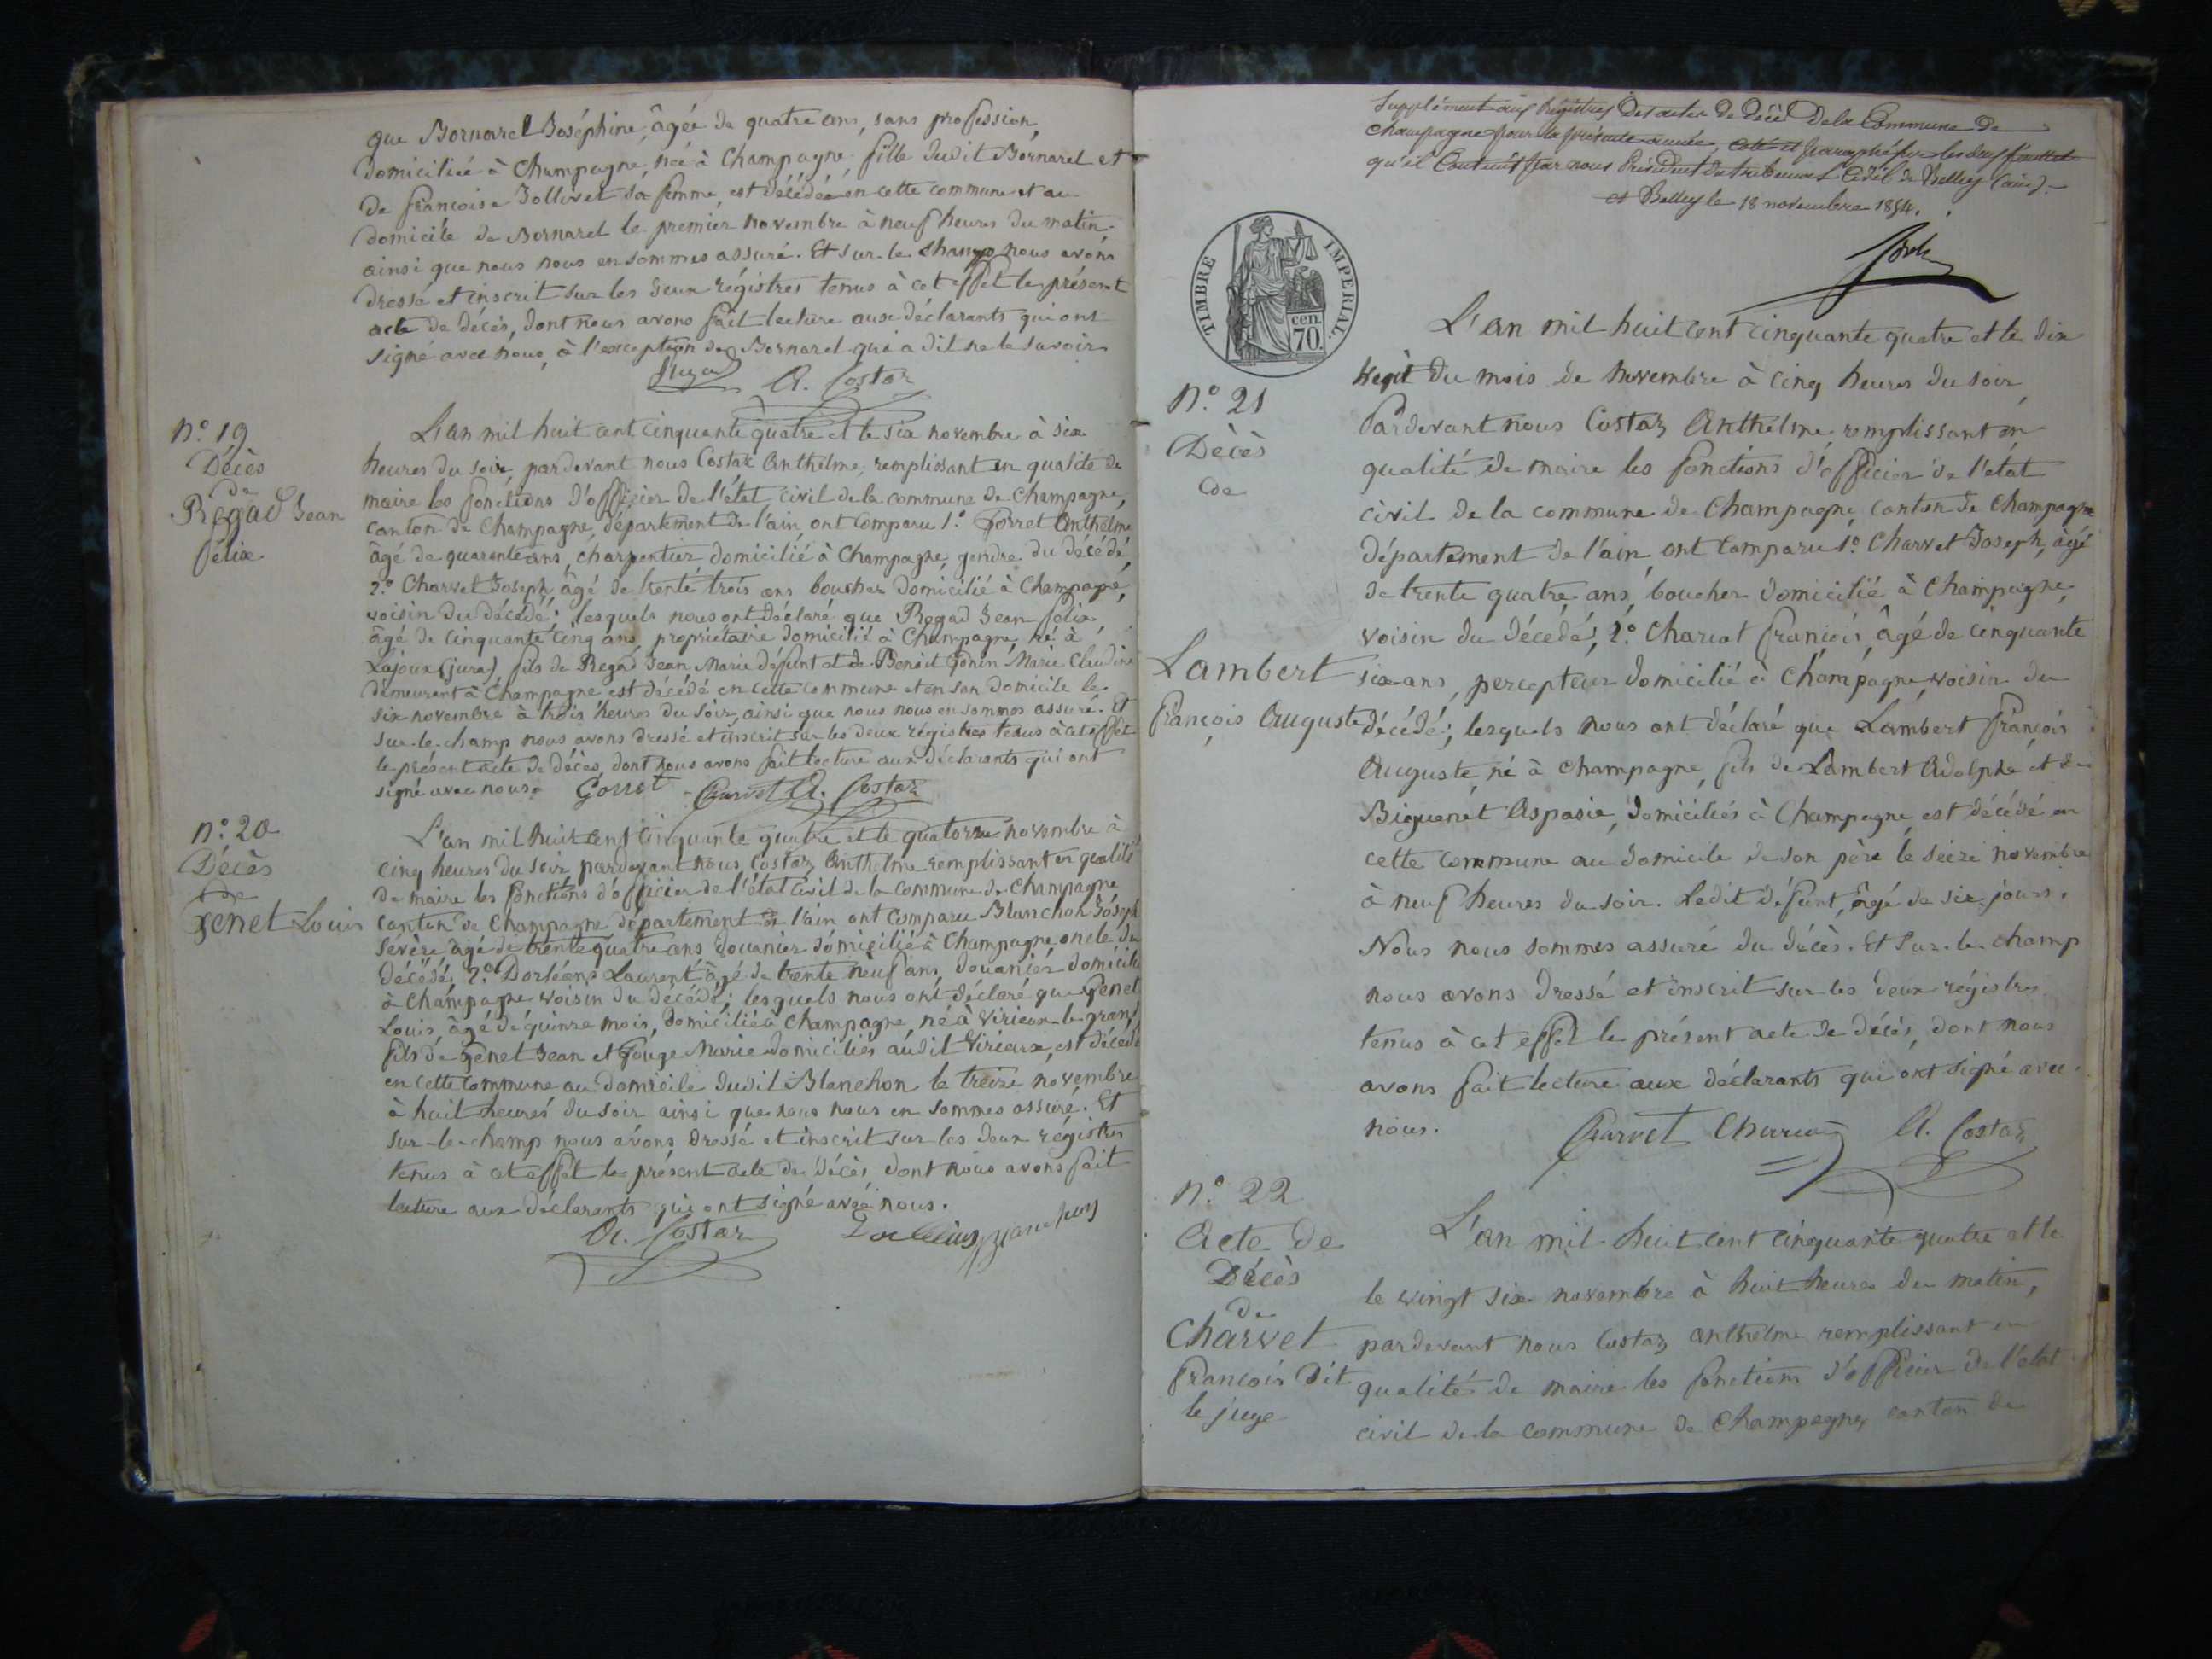 que Bornarel Joséphine, âgée de quatre ans, sans profession,
domiciliée à Champagne, née à Champagne fille dudit Bornarel et
de françoise Jollivet sa femme, est décédée en cette commune et au
domicile de Bornarel le premier novembre à neuf heures du matin
ainsi que nous nous en sommes assuré. Et sur-le-champ nous avons
dressé et inscrit sur les deux régistres tenus à cet effet le présent
acte de décès, dont nous avons fait lecture aux déclarants qui ont
signé avec nous, à l'exception de Bornarel qui a dit ne le savoir
A. Costaz
N.º 19
Décès
de
Regad Jean
félix
L'an mil huit cent cinquante quatre et le six novembre à six
heures du soir, pardevant nous Costaz Anthelme, remplissant en qualité de
maire les fonctions d'officier de l'état civil de la commune de Champagne,
canton de Champagne, département de l'ain, ont comparu 1.º Gorret Anthelme
âgé de quarante ans, charpentier domicilié à Champagne, gendre du décédé,
2.º Charvet Joseph, âgé de trente trois ans boucher domicilié à Champagne,
voisin du décédé; lesquels nous ont déclaré que Regad Jean félix
âgé de cinquante cinq ans, propriétaire domicilié à Champagne, né à
Lajoux (jura) fils de Regad Jean Marie défunt et de Benoit Gonin Marie Claudine
demeurant à Champagne est décédé en cette commune et en son domicile le
six novembre à trois heures du soir, ainsi que nous nous en sommes assuré. Et
sur-le-champ nous avons dressé et inscrit sur les deux régistres tenus à cet effet
le présent acte de décès, dont nous avons fait lecture aux déclarants qui ont
signé avec nous. Gorret Charvet A. Costaz
N.º 20
Décès
de
Genet Louis
L'an mil huit cent cinquante quatre et le quatorze novembre à
cinq heures du soir pardevant nous Costaz Anthelme remplissant en qualité
de maire les fonctions d'officier de l'état civil de la commune de Champagne
canton de Champagne département de l'ain ont comparu Blanchon Joseph
Sévère, âgé de trente quatre ans douanier domicilié à Champagne oncle du
décédé, 2.º Dorléans Laurent âgé de trente neuf ans, douanier domicilié
à Champagne voisin du décédé; lesquels nous ont déclaré que Genet
Louis, âgé de quinze mois, domicilié à Champagne, né à Virieux-le-grand
fils de Genet Jean et Gouge Marie domiciliés audit Virieux, est décédé
en cette commune au domicile dudit Blanchon le treize novembre
à huit heures du soir ainsi que nous nous en sommes assuré. Et
sur-le-champ nous avons dressé et inscrit sur les deux régistres
tenus à cet effet le présent acte de décès, dont nous avons fait
lecture aux déclarants qui ont signé avec nous.
A. Costaz Blanchon
Supplément aux Régistres des actes de décès de la Commune de
Champagne pour la présente année, coté et paraphé sur les deux feuillets
qu'il contient par nous Président du tribunal Civil de Belley (ain)
à Belley le 18 novembre 1854.
TIMBRE IMPERIAL.
cen
70.
N.º 21
Décès
de
Lambert
françois Auguste
L'an mil huit cent cinquante quatre et le dix
sept du mois de novembre à cinq heures du soir
Pardevant nous Costaz Anthelme, remplissant en
qualité de maire les fonctions d'officier de l'état
civil de la commune de Champagne, canton de Champagne
département de l'ain, ont comparu 1.º Charvet Joseph, âgé
de trente quatre ans, boucher domicilié à Champagne,
voisin du décédé, 2.º Chariot françois, âgé de cinquante
six ans, percepteur domicilié à Champagne, voisin du
décédé; lesquels nous ont déclaré que Lambert françois
Auguste, né à Champagne, fils de Lambert Adolphe et de
Biguenet Aspasie, domiciliés à Champagne, est décédé en
cette commune au domicile de son père le seize novembre
à neuf heures du soir. Ledit défunt, âgé de six jours.
Nous nous sommes assuré du décès. Et sur-le-champ
nous avons dressé et inscrit sur les deux régistres
tenus à cet effet le présent acte de décès, dont nous
avons fait lecture aux déclarants qui ont signé avec
nous. Charvet A. Costaz
N.º 22
Acte de
Décès
de
Charvet
françois dit
le juge
L'an mil huit cent cinquante quatre et le
le vingt six novembre à huit heures du matin,
pardevant nous Costaz Anthelme remplissant en
qualité de maire les fonctions d'officier de l'état
civil de la commune de Champagne, canton de